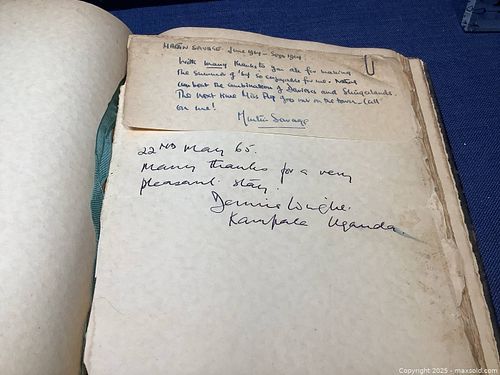 MARTIN SAVAGE June 1964 - Sept 1964
With many thanks to you all for making
the summer of '64 so enjoyable for me. Nothing
can beat the combination of Daviesex and
The next time Miss Pop goes out on the town - Call
on me!
Martin Savage
22ND May 65.
Many thanks for a very
pleasant stay.
Kampala Uganda.
Copyright © 2025 - maxsold.com